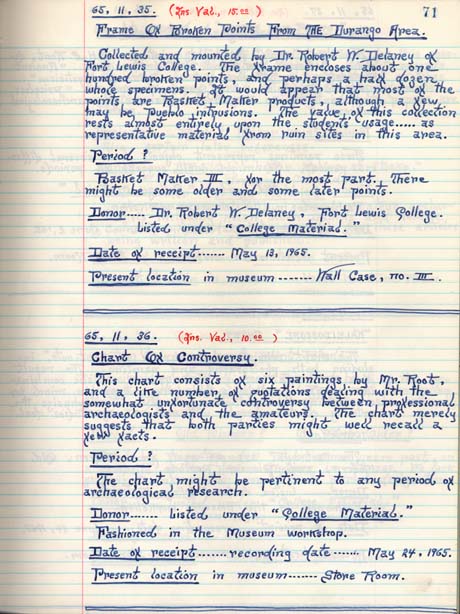 71
65, 11, 35. (Ins. Val., 15.00 )
Frame Of Broken Points From The Durango Area.
Collected and mounted by Dr. Robert W. Delaney of
Fort Lewis College. The frame encloses about one
hundred broken points, and perhaps a half dozen
whole specimens. It would appear that most of the
points are Basket Maker products, although a few
may be Pueblo intrusions. The value of this collection
rests almost entirely upon the students usage.... as
representative material from ruin sites in this area.
Period ?
Basket Maker III, for the most part. There
might be some older and some later points.
Donor.... Dr. Robert W. Delaney, Fort Lewis College.
Listed under "College Material."
Date of receipt...... May 13, 1965.
Present location in museum....... Wall Case, no. III.
65, 11, 36. (Ins. Val., 10.00 )
Chart Of Controversy.
This chart consists of six paintings by Mr. Root,
and a like number of quotations dealing with the
somewhat unfortunate controversy between professional
archaeologists and the amateurs. The chart merely
suggests that both parties might well recall a
few facts.
Period ?
The chart might be pertinent to any period of
archaeological research.
Donor...... Listed under "College Material."
Fashioned in the Museum workshop.
Date of receipt....... recording date...... May 24, 1965.
Present location in museum...... Store Room.